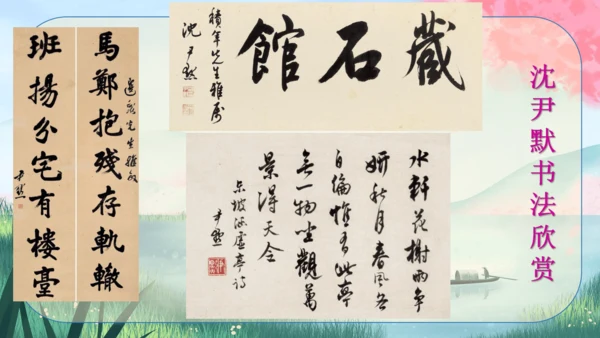 沈尹默书法欣赏
藏石館
積年先生雅屬
沈尹默
馬鄭抱殘存軌轍
先生雅教
班揚分宅有樓臺
尹默
水軒花榭兩爭
妍秋月春風各
自偏惟有此亭
無一物坐觀萬
景得天全
東坡涵虛亭詩
尹默